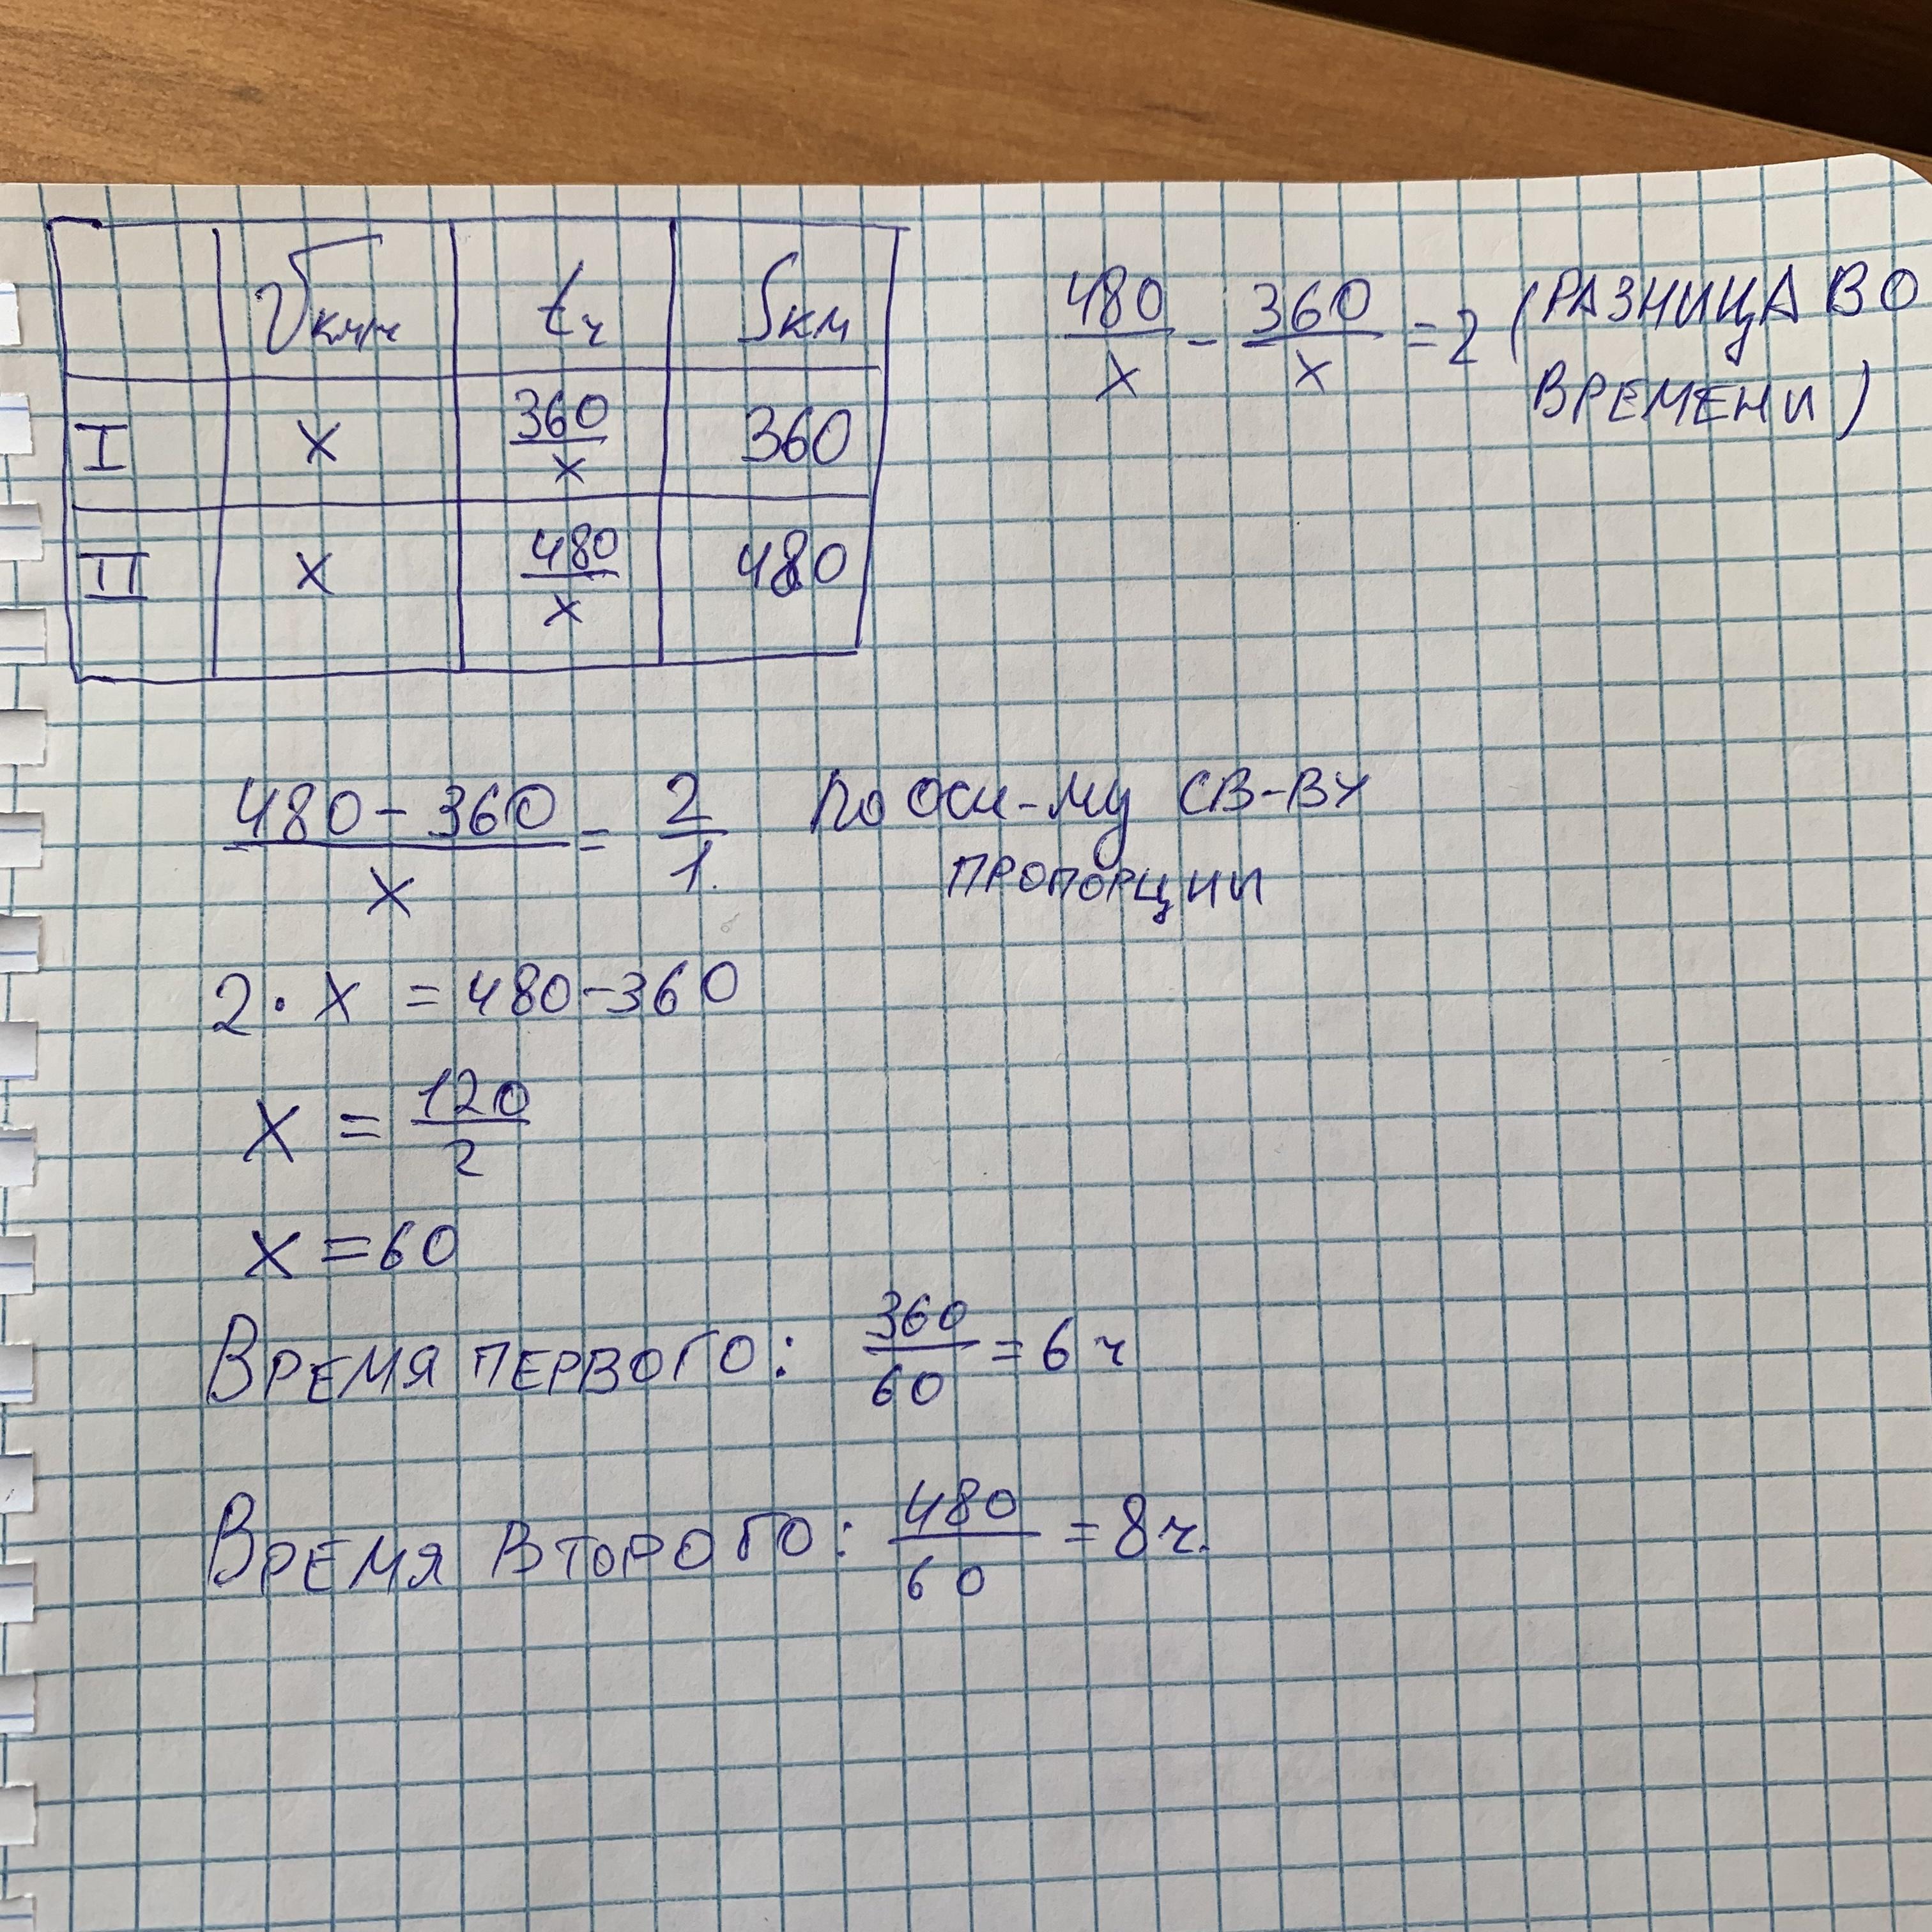 V км/ч t ч S км
I x 360/x 360
II x 480/x 480
480/x - 360/x = 2 (РАЗНИЦА ВО
ВРЕМЕНИ)
480 - 360/x = 2/1. По осн-му СВ-ВУ
ПРОПОРЦИИ
2 · x = 480 - 360
x = 120/2
x = 60
ВРЕМЯ ПЕРВОГО: 360/60 = 6 ч
ВРЕМЯ ВТОРОГО: 480/60 = 8 ч.